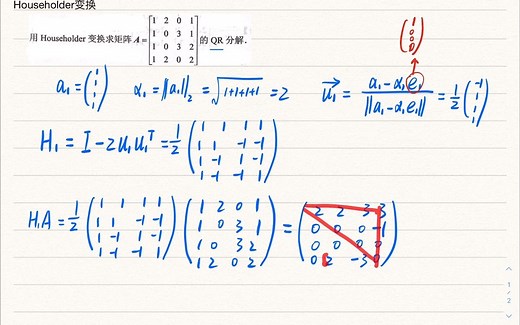 Householder变换
用 Householder 变换求矩阵 A = [1 2 0 1; 1 0 3 1; 1 0 3 2; 1 2 0 2] 的 QR 分解.
(1 0 0 0)
a₁ = (1 1 1 1) α₁ = ‖a₁‖₂ = √(1+1+1+1) = 2 u₁ = (a₁-α₁e₁)/‖a₁-α₁e₁‖ = 1/2 (-1 1 1 1)
H₁ = I - 2u₁u₁ᵀ = 1/2 (1 1 1 1; 1 1 -1 -1; 1 -1 1 -1; 1 -1 -1 1)
H₁A = 1/2 (1 1 1 1; 1 1 -1 -1; 1 -1 1 -1; 1 -1 -1 1) (1 2 0 1; 1 0 3 1; 1 0 3 2; 1 2 0 2) = (2 2 3 3; 0 0 0 -1; 0 0 0 0; 0 2 -3 0)
1
2